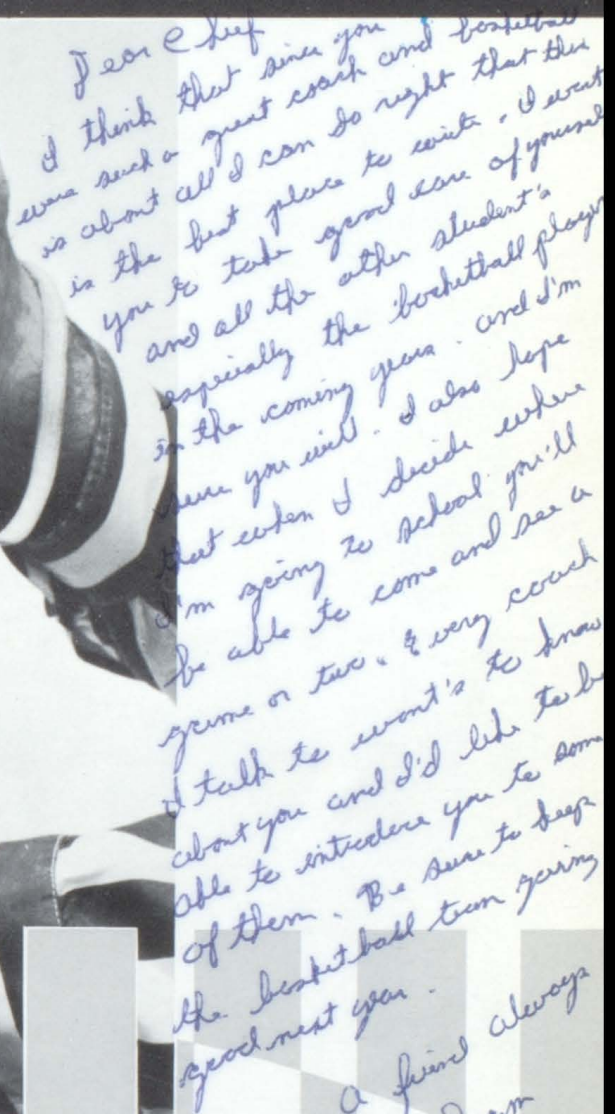 Dear Chief
I think that since you
were such a great coach and basketball
is about all I can do right that this
is the best place to write. I want
you to take good care of yourself
and all the other student's
especially the basketball player
in the coming years. and I'm
sure you will. I also hope
that when I decide where
I'm going to school you'll
be able to come and see a
game or two. Every coach
I talk to want's to know
about you and I'd like to be
able to introduce you to some
of them. Be sure to keep
the basketball team going
good next year.
a friend always